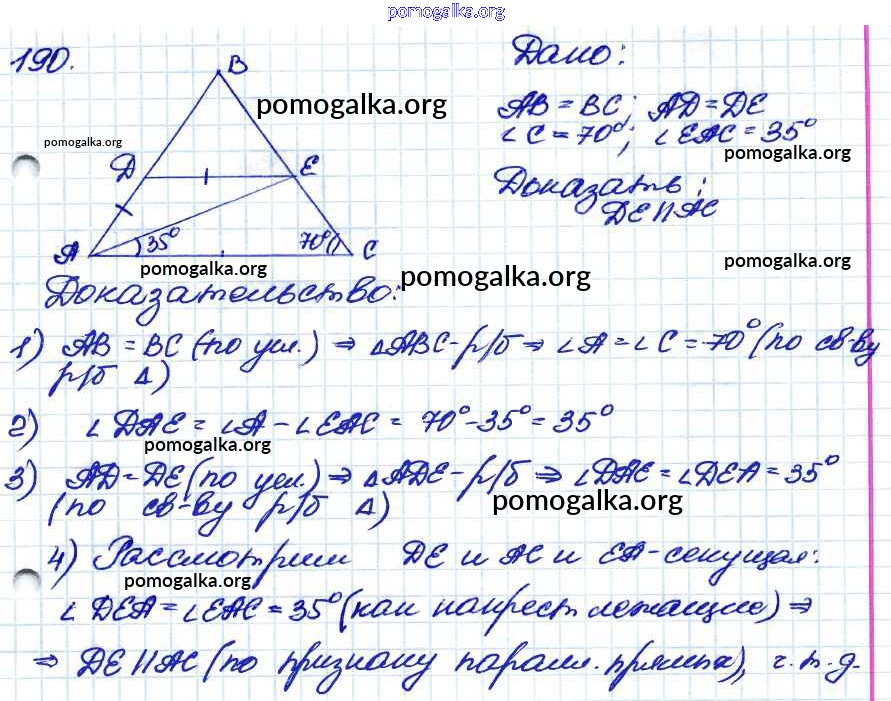 pomogalka.org
190.
B
Дано:
pomogalka.org
AB = BC; AD = DE
pomogalka.org
∠C = 70°; ∠EAC = 35°
pomogalka.org
D
E
Доказать:
DE || AC
A
35°
70°
C
pomogalka.org
pomogalka.org
pomogalka.org
Доказательство:
1) AB = BC (по усл.) ⇒ ΔABC - р/б ⇒ ∠A = ∠C = 70° (по св-ву
р/б Δ)
2) ∠DAE = ∠A - ∠EAC = 70° - 35° = 35°
pomogalka.org
3) AD = DE (по усл.) ⇒ ΔADE - р/б ⇒ ∠DAE = ∠DEA = 35°
(по св-ву р/б Δ)
pomogalka.org
4) Рассмотрим DE и AC и EA - секущая:
pomogalka.org
∠DEA = ∠EAC = 35° (как накрест лежащие) ⇒
⇒ DE || AC (по признаку парал. прямых), ч.т.д.